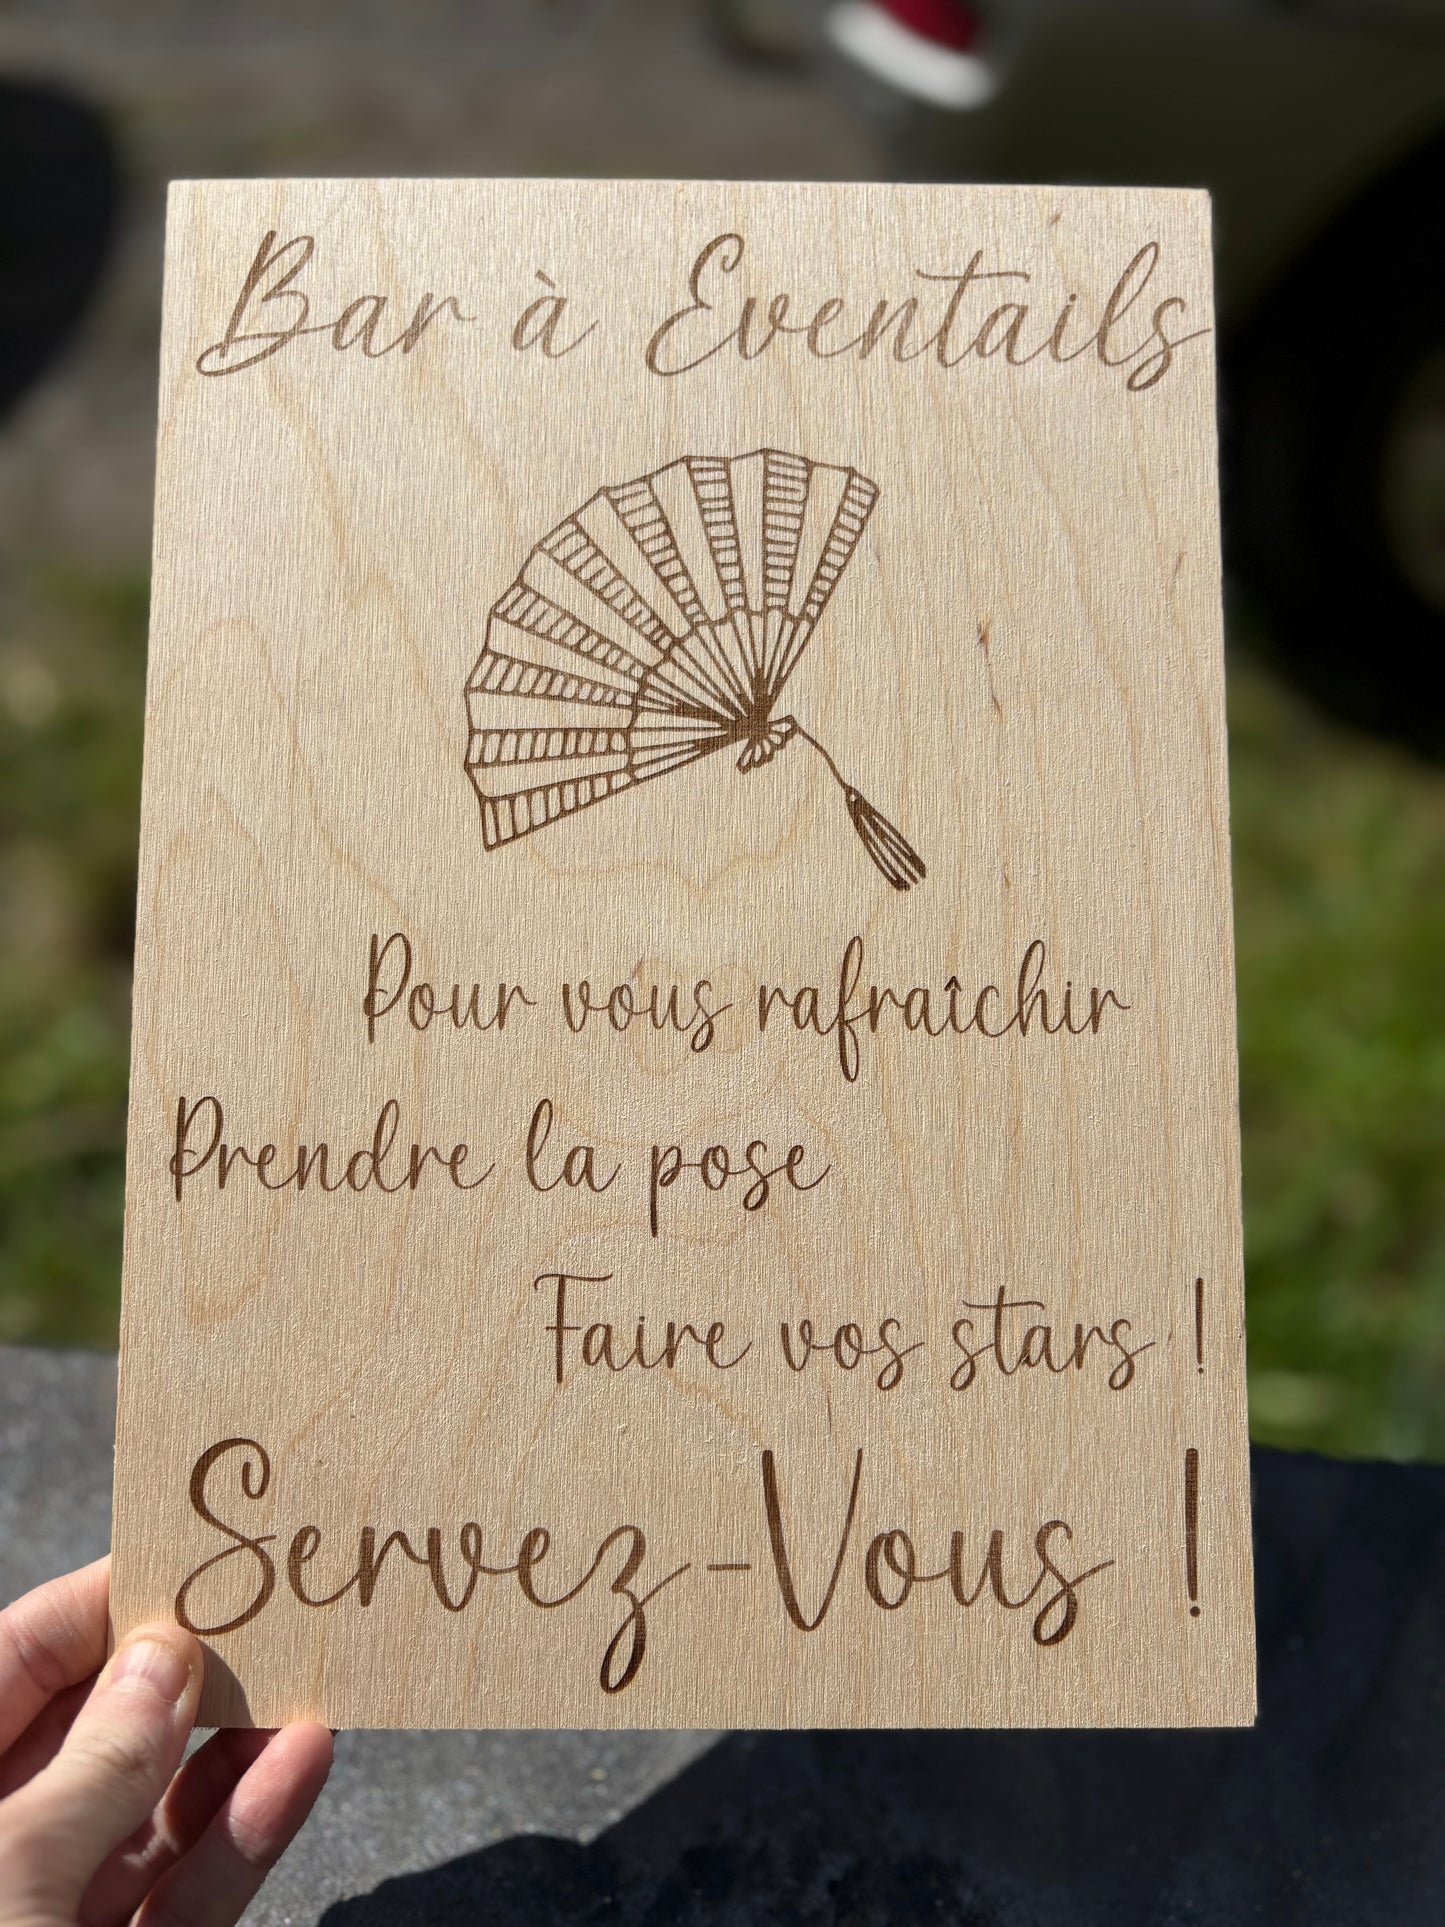 Bar à Eventails
Pour vous rafraîchir
Prendre la pose
Faire vos stars !
Servez-Vous !